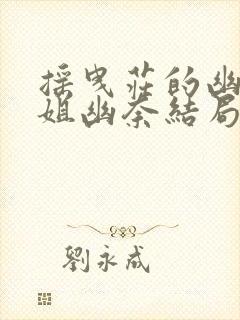 採曳莊的幽
姐幽奈結局
劉永成